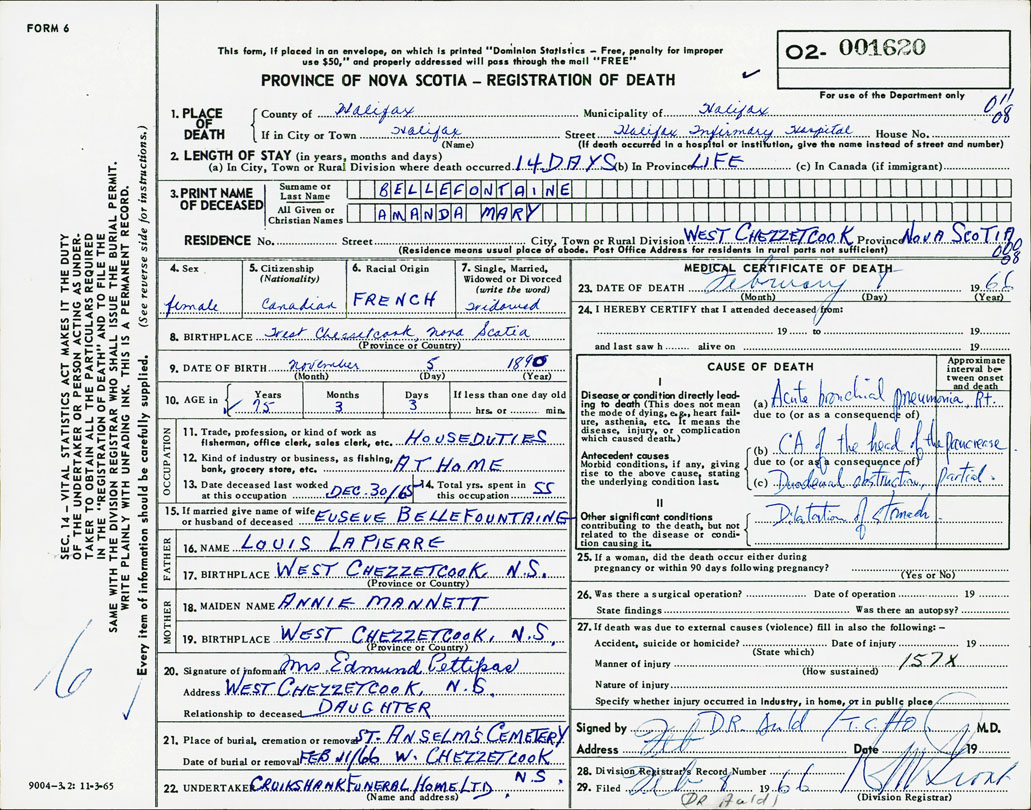 FORM 6
This form, if placed in an envelope, on which is printed "Dominion Statistics – Free, penalty for improper
use $50," and properly addressed will pass through the mail "FREE"
PROVINCE OF NOVA SCOTIA – REGISTRATION OF DEATH
O2- 001620
For use of the Department only
011
08
1. PLACE OF DEATH
County of Halifax Municipality of Halifax
If in City or Town Halifax Street Halifax Infirmary Hospital House No.
(Name) (If death occurred in a hospital or institution, give the name instead of street and number)
2. LENGTH OF STAY (in years, months and days)
(a) In City, Town or Rural Division where death occurred 14 DAYS (b) In Province LIFE (c) In Canada (if immigrant)
3. PRINT NAME OF DECEASED
Surname or Last Name BELLEFONTAINE
All Given or Christian Names AMANDA MARY
RESIDENCE No. Street City, Town or Rural Division WEST CHEZZETCOOK Province NOVA SCOTIA
(Residence means usual place of abode. Post Office Address for residents in rural parts not sufficient)
4. Sex
female
5. Citizenship
(Nationality)
Canadian
6. Racial Origin
FRENCH
7. Single, Married,
Widowed or Divorced
(write the word)
widowed
8. BIRTHPLACE West Chezzetcook, Nova Scotia
(Province or Country)
9. DATE OF BIRTH November 5 1890
(Month) (Day) (Year)
10. AGE in
Years Months Days If less than one day old
75 3 3 hrs. or min.
OCCUPATION
11. Trade, profession, or kind of work as
fisherman, office clerk, sales clerk, etc. HOUSEDUTIES
12. Kind of industry or business, as fishing,
bank, grocery store, etc. AT HOME
13. Date deceased last worked
at this occupation DEC. 30/65
14. Total yrs. spent in
this occupation 55
15. If married give name of wife
or husband of deceased EUSEVE BELLEFOUNTAINE
FATHER
16. NAME LOUIS LAPIERRE
17. BIRTHPLACE WEST CHEZZETCOOK, N.S.
(Province or Country)
MOTHER
18. MAIDEN NAME ANNIE MANNETT
19. BIRTHPLACE WEST CHEZZETCOOK, N.S.
(Province or Country)
20. Signature of informant Mrs. Edmund Pettipas
Address WEST CHEZZETCOOK, N.S.
Relationship to deceased DAUGHTER
21. Place of burial, cremation or removal ST. ANSELM'S CEMETERY
Date of burial or removal FEB 11/66 W. CHEZZETCOOK
N S.
22. UNDERTAKER CRUIKSHANK FUNERAL HOME LTD.
(Name and address)
MEDICAL CERTIFICATE OF DEATH
23. DATE OF DEATH February 8 1966
(Month) (Day) (Year)
24. I HEREBY CERTIFY that I attended deceased from:
19 to 19
and last saw h alive on 19
CAUSE OF DEATH
Approximate
interval be-
tween onset
and death
I
Disease or condition directly lead-
ing to death (This does not mean
the mode of dying, e.g., heart fail-
ure, asthenia, etc. It means the
disease, injury, or complication
which caused death.)
(a) Acute bronchial pneumonia Rt.
due to (or as a consequence of)
Antecedent causes
Morbid conditions, if any, giving
rise to the above cause, stating
the underlying condition last.
(b) CA of the head of the pancrease
due to (or as a consequence of)
(c) Duodenal obstruction, partial.
II
Other significant conditions
contributing to the death, but not
related to the disease or condi-
tion causing it.
Dilatation of stomach.
25. If a woman, did the death occur either during
pregnancy or within 90 days following pregnancy?
(Yes or No)
26. Was there a surgical operation? Date of operation 19
State findings Was there an autopsy?
27. If death was due to external causes (violence) fill in also the following: –
Accident, suicide or homicide? Date of injury 19
(State which)
Manner of injury 157X
(How sustained)
Nature of injury
Specify whether injury occurred in Industry, in home, or in public place
Signed by DR. Auld M.D.
Address Date 19
28. Division Registrar's Record Number
29. Filed Feb 8 1966
(Division Registrar)
(DR Auld)
SEC. 14 – VITAL STATISTICS ACT MAKES IT THE DUTY
OF THE UNDERTAKER OR PERSON ACTING AS UNDER-
TAKER TO OBTAIN ALL THE PARTICULARS REQUIRED
IN THE "REGISTRATION OF DEATH" AND TO FILE THE
SAME WITH THE DIVISION REGISTRAR WHO SHALL ISSUE THE BURIAL PERMIT.
WRITE PLAINLY WITH UNFADING INK. THIS IS A PERMANENT RECORD.
Every item of information should be carefully supplied. (See reverse side for instructions.)
6
9004-3.2: 11-3-65